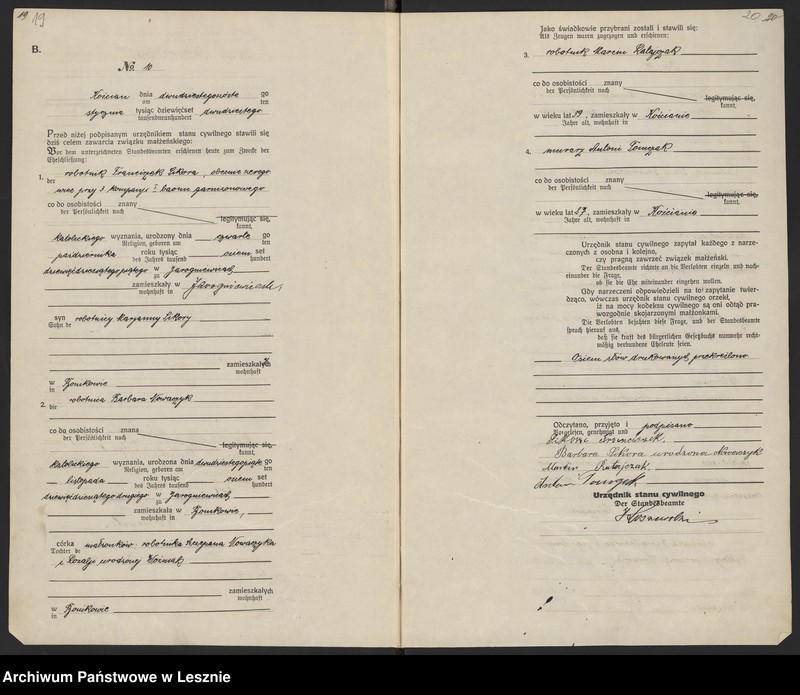 19 19
B.
No. 10
Kościan dnia dwudziestegoszóste go
am ten
stycznia tysiąc dziewięćset dwudziestego
tausendneunhundert
Przed niżej podpisanym urzędnikiem stanu cywilnego stawili się
dziś celem zawarcia związku małżeńskiego:
Vor dem unterzeichneten Standesbeamten erschienen heute zum Zwecke der
Eheschließung:
1. robotnik Franciszek Sikora, obecnie szrego
der
wiec przy 3 kompanji I baonu garnizonowego
co do osobistości znany
der Persönlichkeit nach
legitymując się,
kannt,
katolickiego wyznania, urodzony dnia czwarte go
Religion, geboren am ten
października roku tysiąc ośem set
des Jahres tausend hundert
dziewięćdziesiątego piątego w Jarogniewicach,
zu
zamieszkały w Jarogniewicach,
wohnhaft in
syn robotnicy Maryanny Sikory
Sohn de
zamieszkałych
wohnhaft
w Bonikowie
in
2. robotnica Barbara Nowaczyk
die
co do osobistości znana
der Persönlichkeit nach
legitymując się,
kannt,
katolickiego wyznania, urodzona dnia dwudziestegopiąte go
Religion, geboren am ten
listopada roku tysiąc ośem set
des Jahres tausend hundert
dziewięćdziesiątego drugiego w Jarogniewicach,
zu
zamieszkała w Bonikowie,
wohnhaft in
córka małżonków: robotnika Szczepana Nowaczyka
Tochter de
i Rozalji urodzonej Woźniak
zamieszkałych
wohnhaft
w Bonikowie
in
20 20
Jako świadkowie przybrani zostali i stawili się:
Als Zeugen waren zugezogen und erschienen:
3. robotnik Marcin Ratajczak
co do osobistości znany
der Persönlichkeit nach
legitymując się,
kannt,
w wieku lat 59, zamieszkały w Kościanie
Jahre alt, wohnhaft in
4. murarz Antoni Tomczak
co do osobistości znany
der Persönlichkeit nach
legitymując się,
kannt,
w wieku lat 57, zamieszkały w Kościanie
Jahre alt, wohnhaft in
Urzędnik stanu cywilnego zapytał każdego z narze-
czonych z osobna i kolejno,
czy pragną zawrzeć związek małżeński.
Der Standesbeamte richtete an die Verlobten einzeln und nach-
einander die Frage,
ob sie die Ehe miteinander eingehen wollen.
Gdy narzeczeni odpowiedzieli na to zapytanie twier-
dząco, wówczas urzędnik stanu cywilnego orzekł,
iż na mocy kodeksu cywilnego są oni odtąd pra-
wozgodnie skojarzonymi małżonkami.
Die Verlobten bejahten diese Frage, und der Standesbeamte
sprach hierauf aus,
daß sie kraft des bürgerlichen Gesetzbuchs nunmehr recht-
mäßig verbundene Eheleute seien.
Ośiem słów drukowanych przekreślono
Odczytano, przyjęto i podpisano
Vorgelesen, genehmigt und
Sikora Franciszek.
Barbara Sikora urodzona Nowaczyk
Martin Ratajczak.
Anton Tomczak
Urzędnik stanu cywilnego
Der Standesbeamte
Archiwum Państwowe w Lesznie